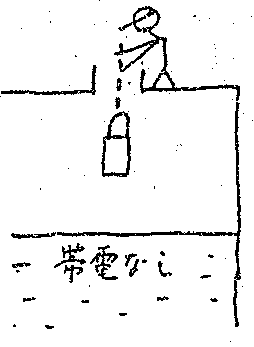 帯電なし